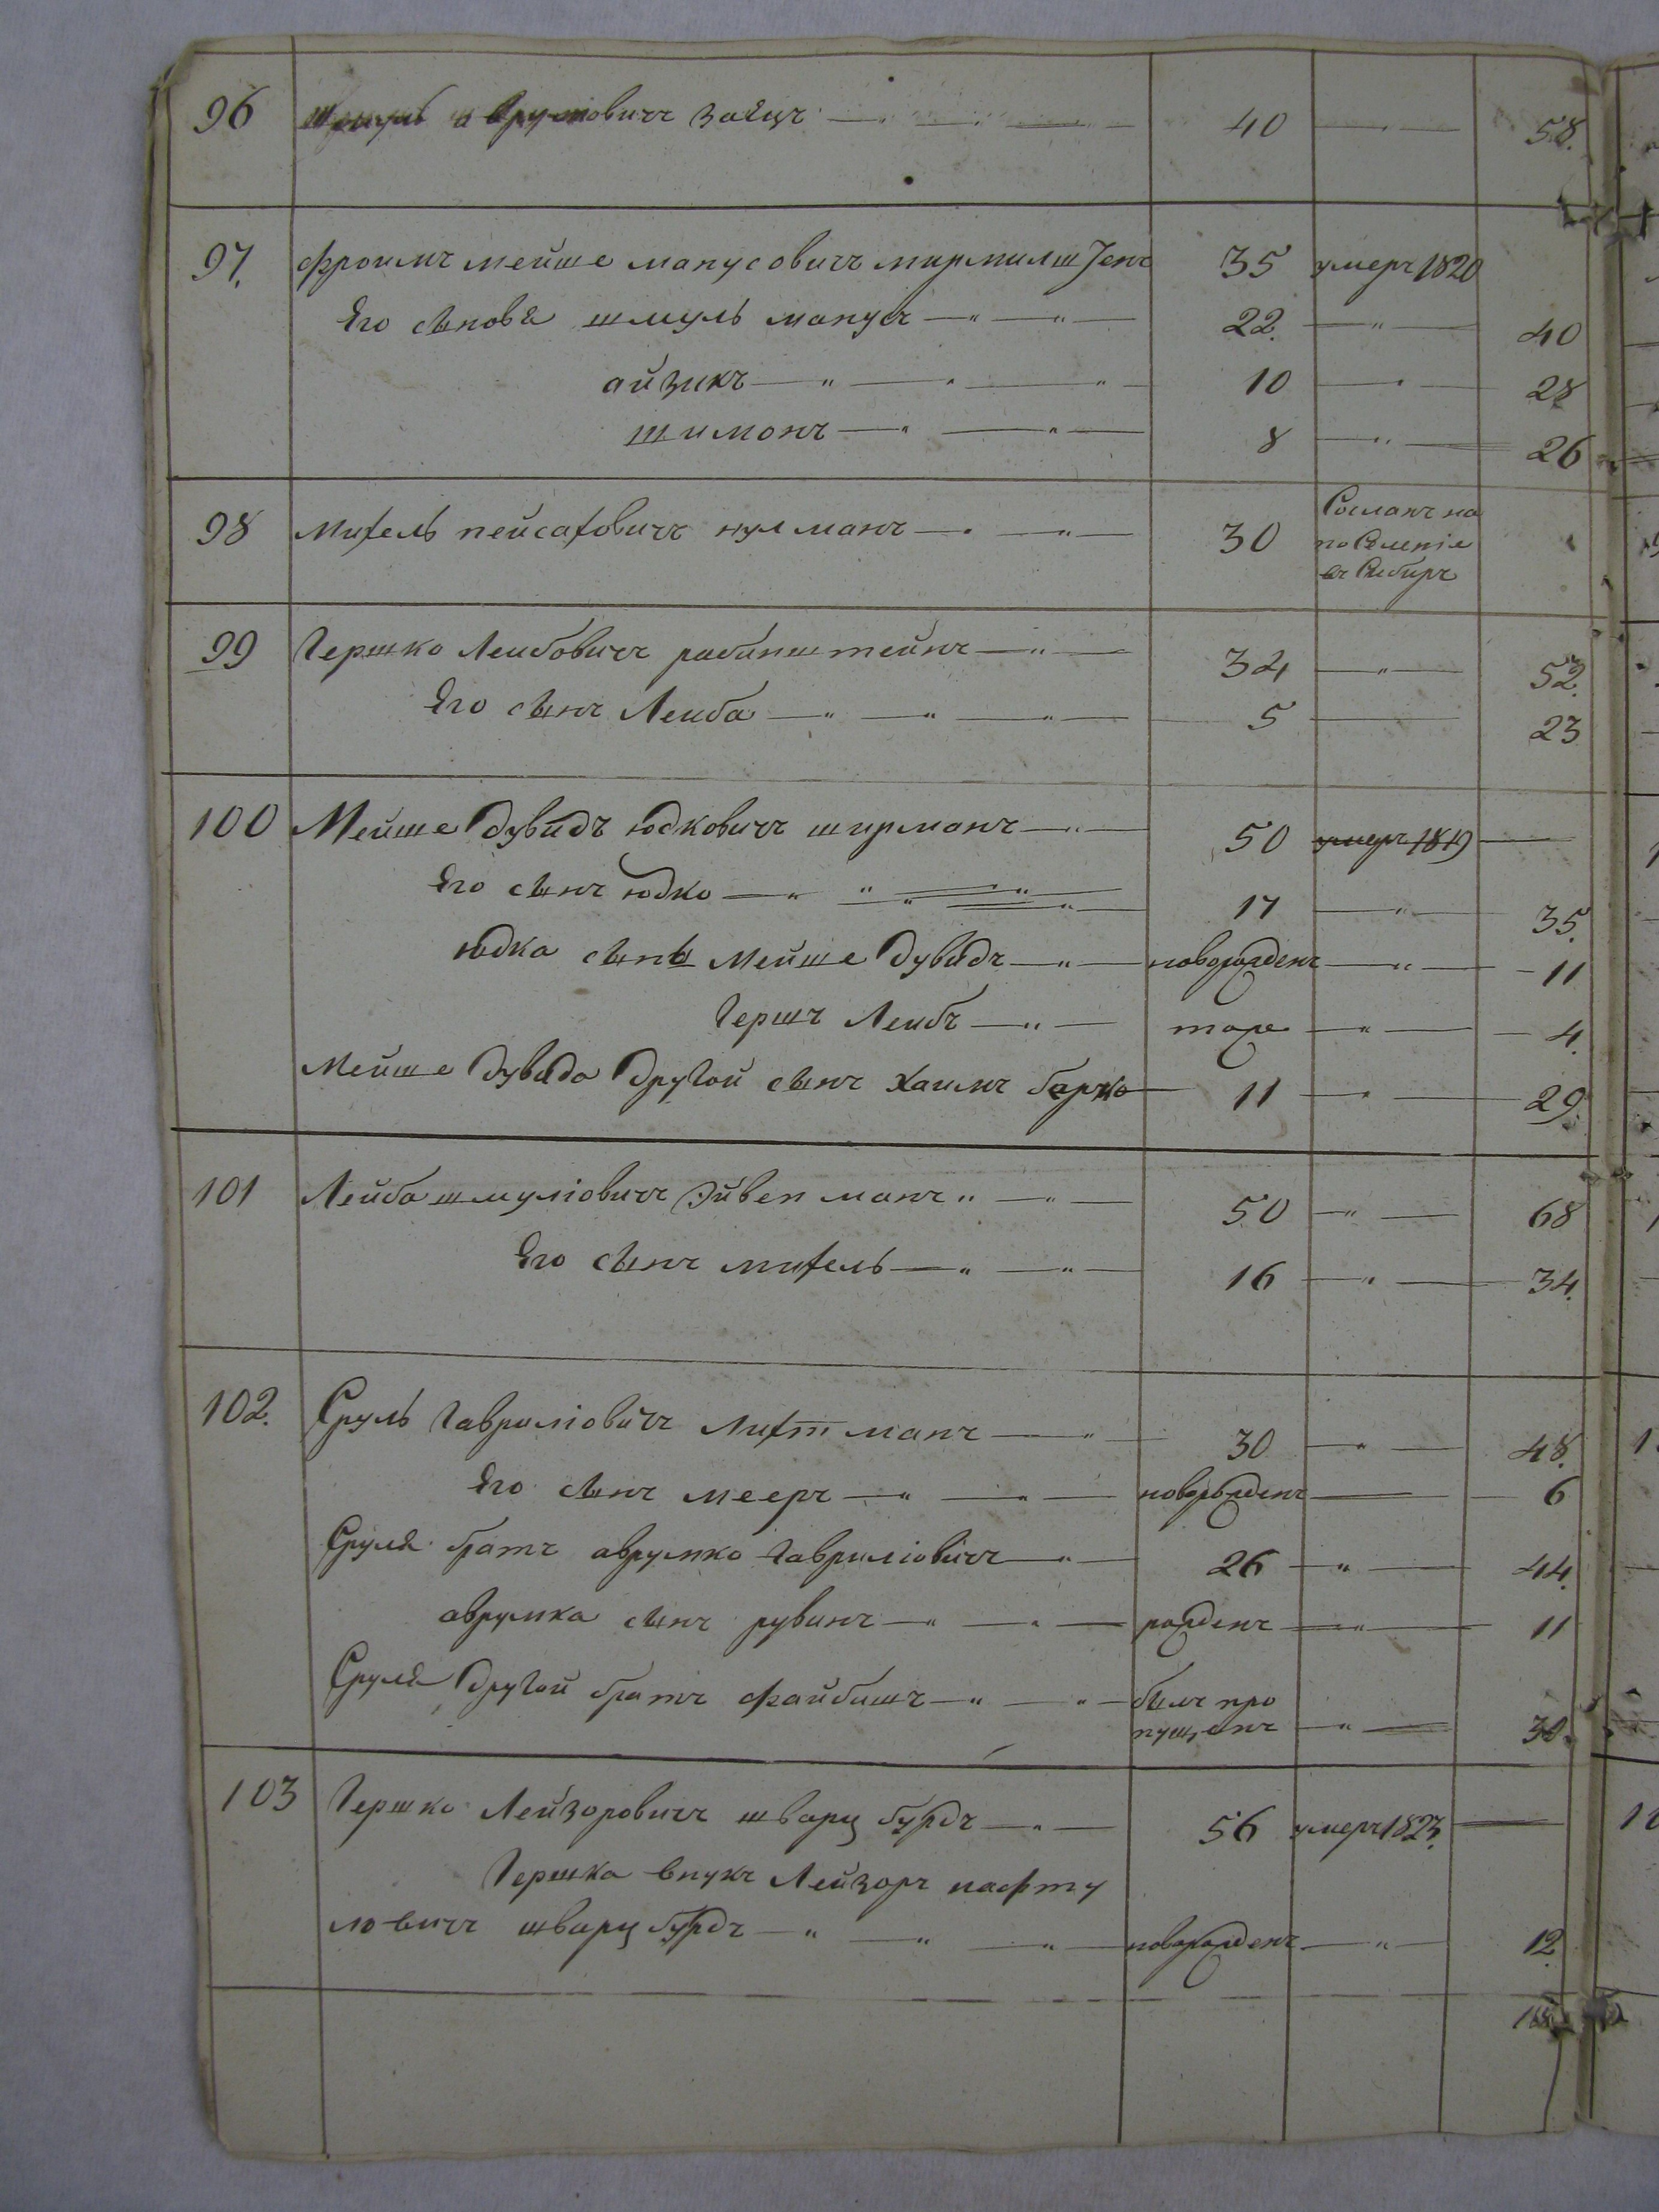 96 Аврумовичъ Заяцъ 40 58.
97. Фроимъ Мейше Манусовичъ 35 умеръ 1820
Его сыновя Шмуль Манусъ 22. 40
Айзикъ 10 28
Шимонъ 8 26
98 Михель Пейсаховичъ Нулманъ 30 Сосланъ на
поселеніе
въ Сибиръ
99 Гершко Лейбовичъ Рабинштейнъ 34 52.
Его сынъ Леиба 5 23
100 Мейше Дувидъ Юдковичъ Ширманъ 50 умеръ 1819
Его сынъ Юдко 17 35.
Юдка сынъ Мейше Дувидъ новорожденъ 11
Гершъ Леибъ тоже 4.
Мейше Дувида другой сынъ Хаимъ Берко 11 29.
101 Лейба Шмуліовичъ Эйвенманъ 50 68
Его сынъ Михель 16 34.
102. Сруль Гавриліовичъ Лихтманъ 30 48.
Его сынъ Мееръ новорожденъ 6
Сруля братъ Аврумко Гавриліовичъ 26 44.
Аврумка сынъ Рувинъ рожденъ 11
Сруля другой братъ Файбишъ былъ про
пущенъ 30.
103 Гершко Лейзоровичъ Шварцбурдъ 56 умеръ 1823.
Гершка внукъ Лейзоръ Нафту
ловичъ Шварцбурдъ новорожденъ 12